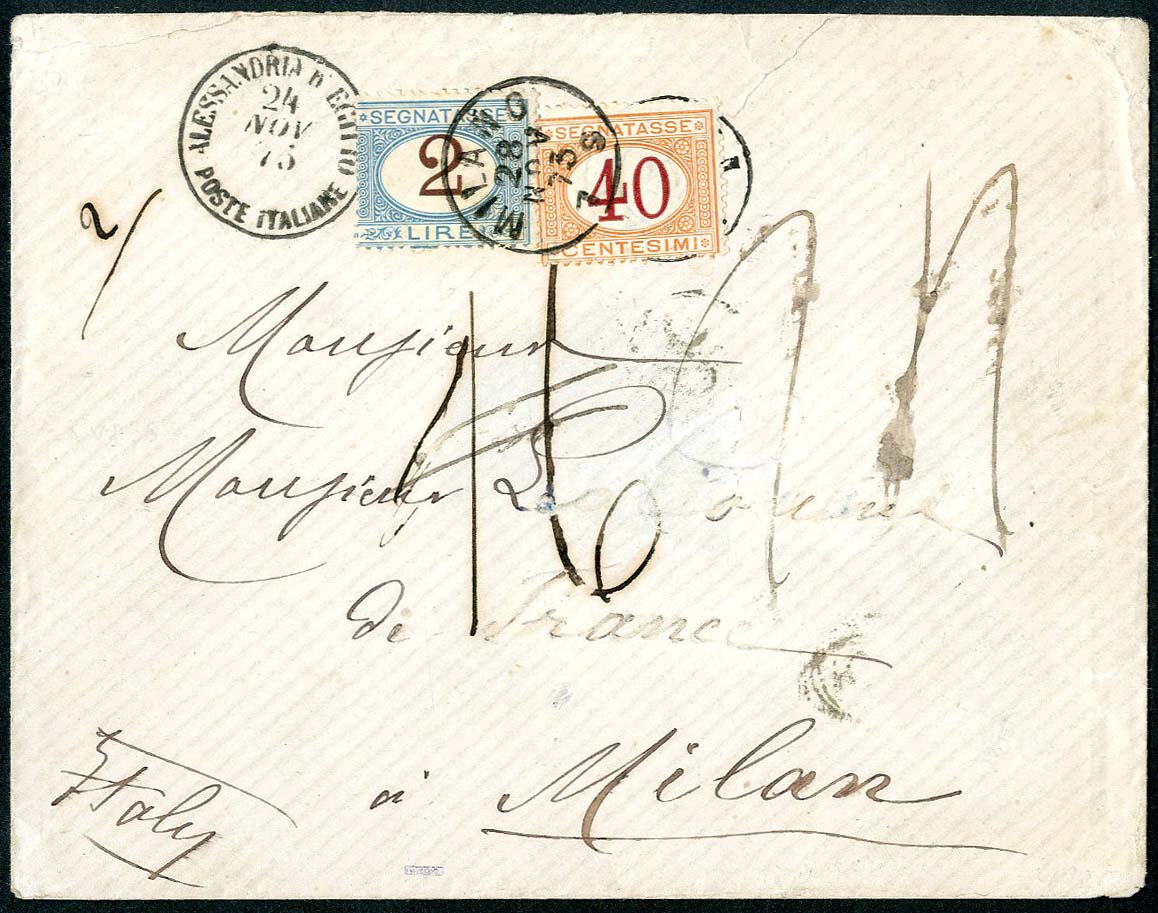 ALESSANDRIA D'EGITTO
24
NOV
75
POSTE ITALIANE
SEGNATASSE
2
LIRE
MILANO
28
NOV
73
7 S
SEGNATASSE
40
CENTESIMI
2/
Monsieur
Monsieur Le Consul
de France
à Milan
Italy